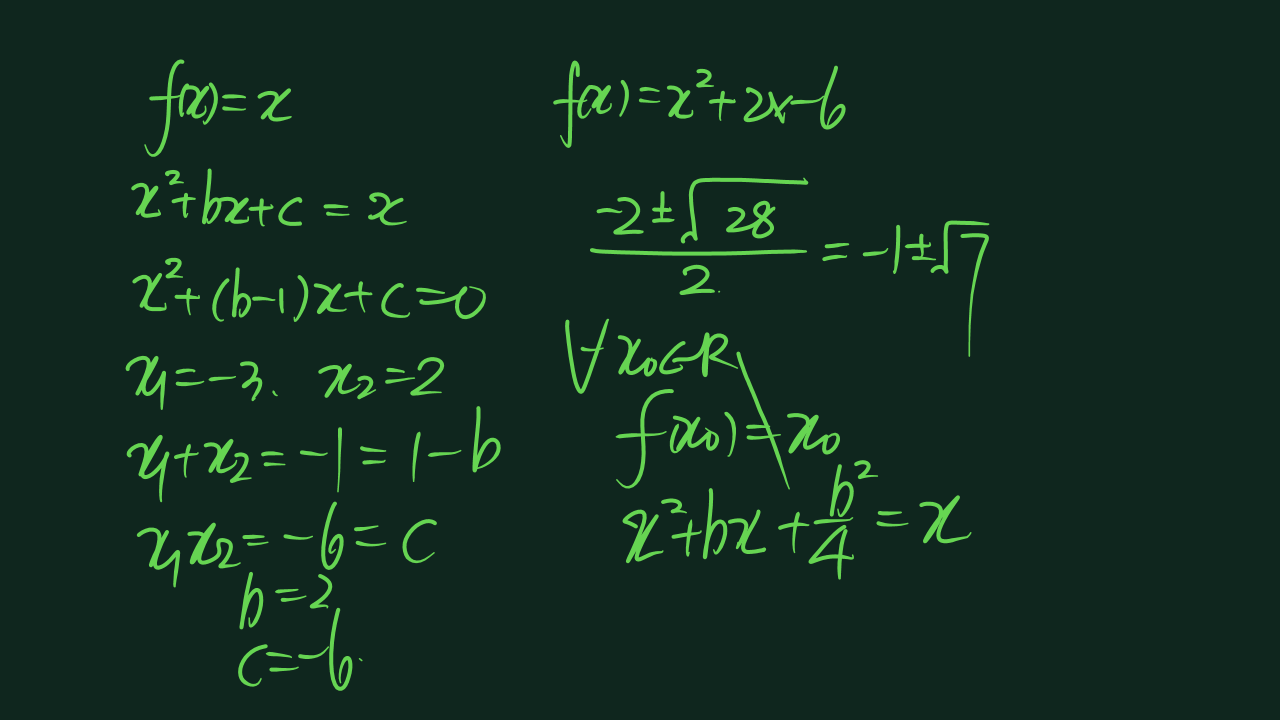 f(x)=x
x²+bx+c=x
x²+(b-1)x+c=0
x₁=-3. x₂=2
x₁+x₂=-1=1-b
x₁x₂=-6=c
b=2
c=-6.
f(x)=x²+2x-6
(-2±√28)/2=-1±√7
∀x₀∈R
f(x₀)=x₀
x²+bx+b²/4=x